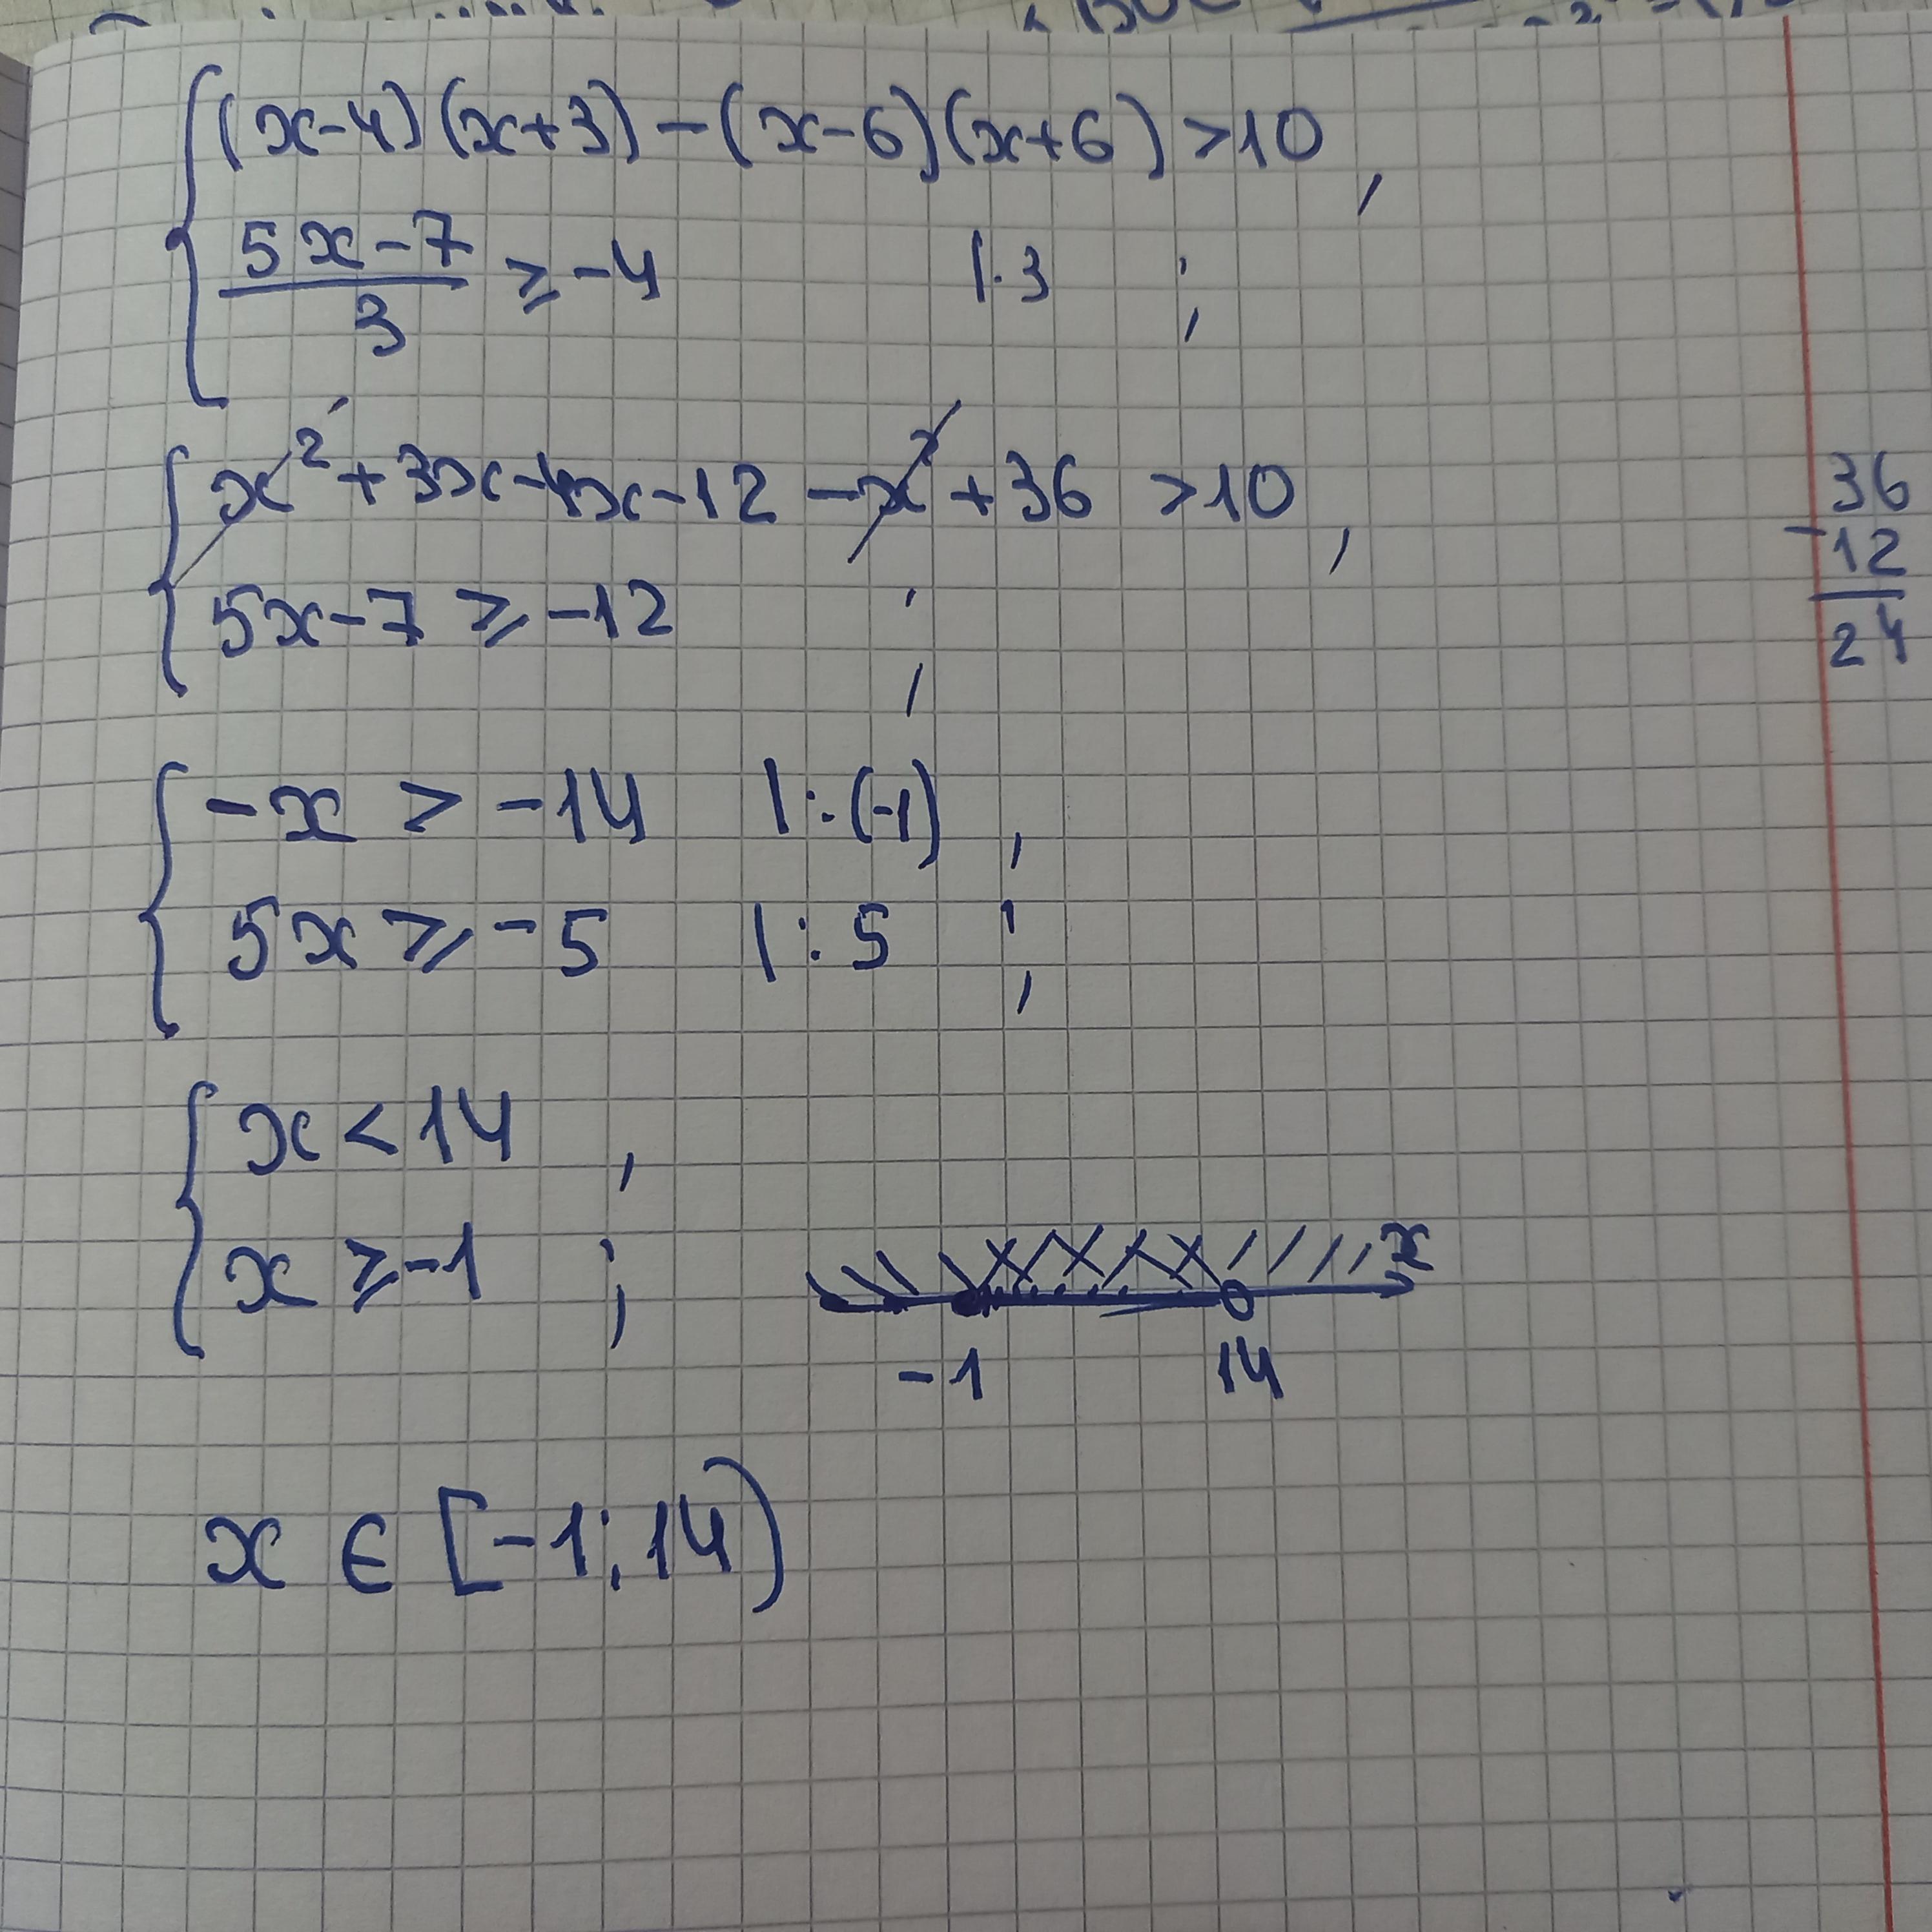 (x-4)(x+3)-(x-6)(x+6)>10,
(5x-7)/3 ≥ -4 |·3 ;
x²+3x-4x-12-x²+36 >10,
5x-7 ≥ -12 ;
36
-12
24
-x > -14 |:(-1) ,
5x ≥ -5 |:5 ;
x < 14 ,
x ≥ -1 ;
x
-1 14
x ∈ [-1;14)